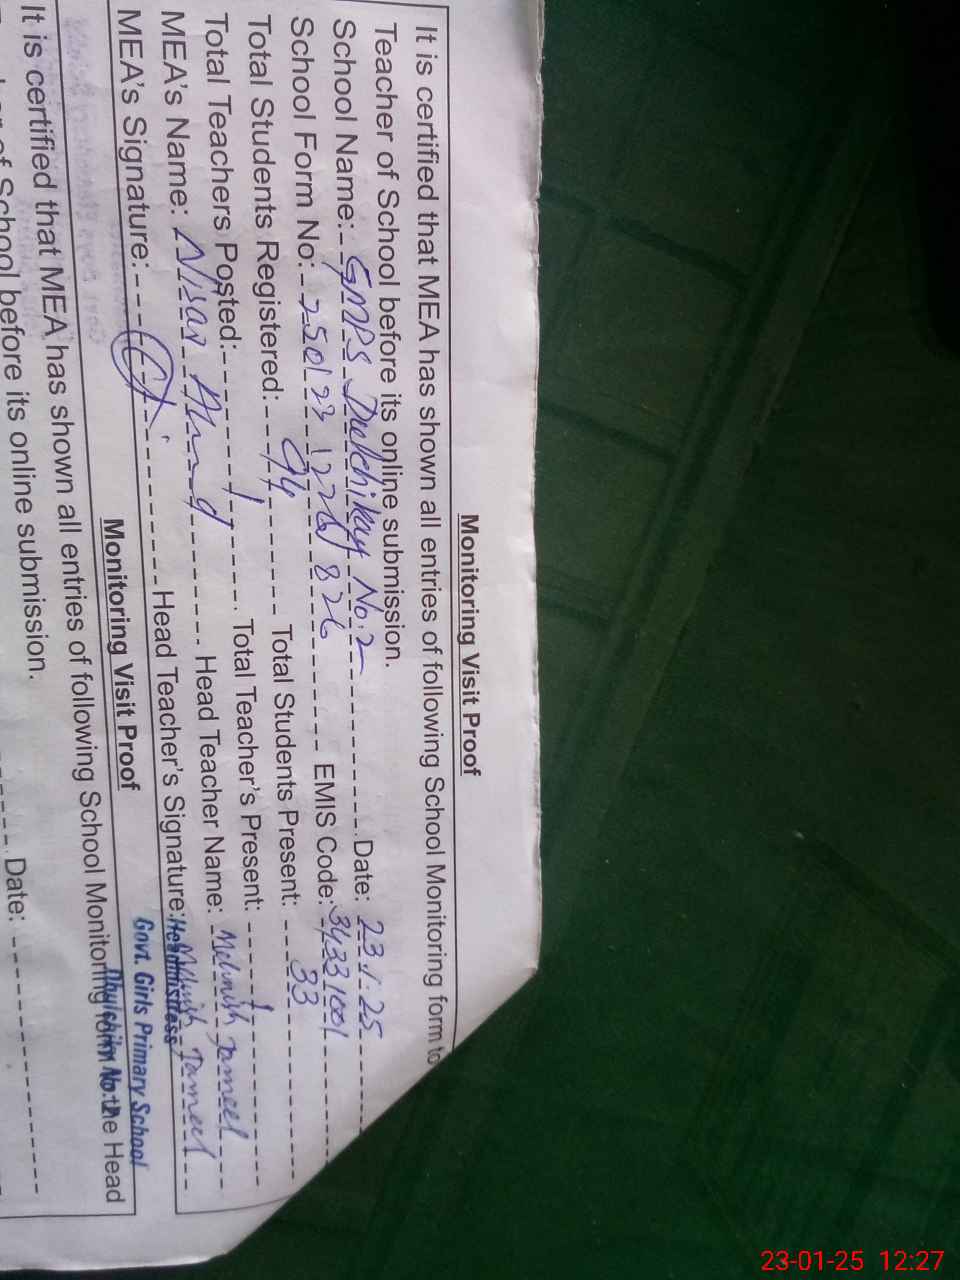 Monitoring Visit Proof
It is certified that MEA has shown all entries of following School Monitoring form to
Teacher of School before its online submission.
School Name: GMPS Dulchikay No.2 Date: 23.1.25
School Form No: 25012312268 26 EMIS Code: 34331001
Total Students Registered: 94 Total Students Present: 33
Total Teachers Posted: 1 Total Teacher's Present: 1
MEA's Name: Nisar Ahmad Head Teacher Name: Mehwish Jameel
MEA's Signature: Head Teacher's Signature: Mehwish Jameel
Headmistress
Govt. Girls Primary School
No:2
Monitoring Visit Proof
It is certified that MEA has shown all entries of following School Monitoring form the Head
School before its online submission.
Date:
23-01-25 12:27